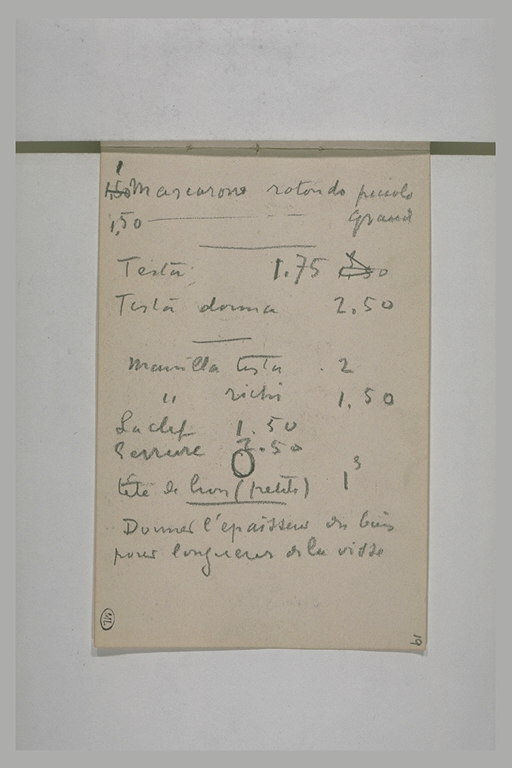 1
1,50 Mascarone rotondo piccolo
1,50 grand
Testa 1.75 1.50
Testa donna 2.50
Maniglia testa . 2
" 1.50
La clef 1.50
Serrure 2.50
tête de lion (petite) 1
Donner l'épaisseur du bois
pour longueur de la visse
ML
19